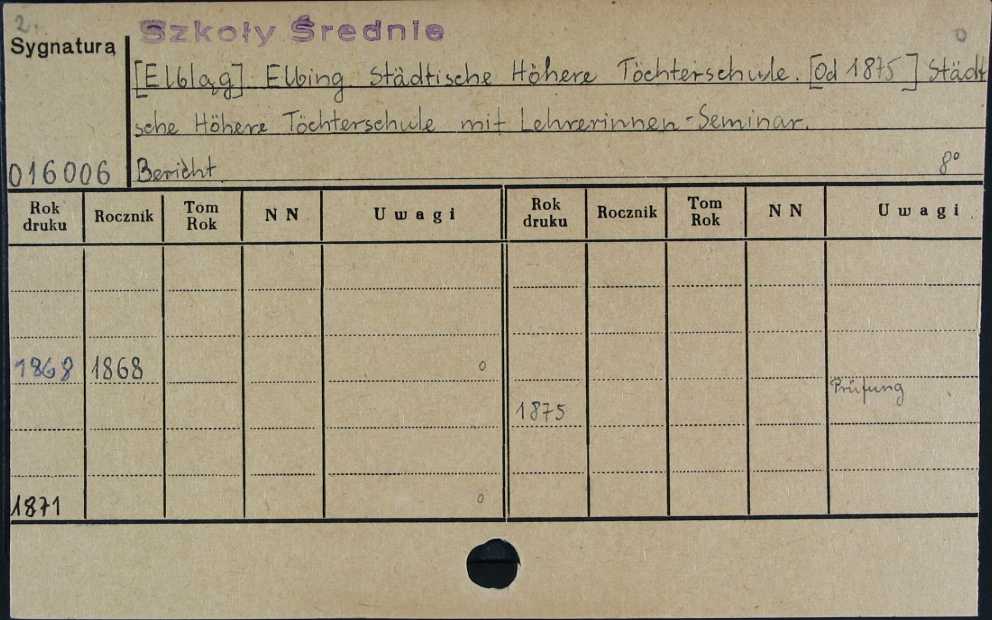 2.
Szkoły Średnie
0
Sygnatura
[Elbląg]. Elbing. Städtische Höhere Töchterschule. [Od 1875] Städt
sche Höhere Töchterschule mit Lehrerinnen-Seminar.
016006 Bericht. 8°
Rok druku Rocznik Tom Rok NN Uwagi Rok druku Rocznik Tom Rok NN Uwagi
1868 1868 0
Prüfung
1875
1871 0